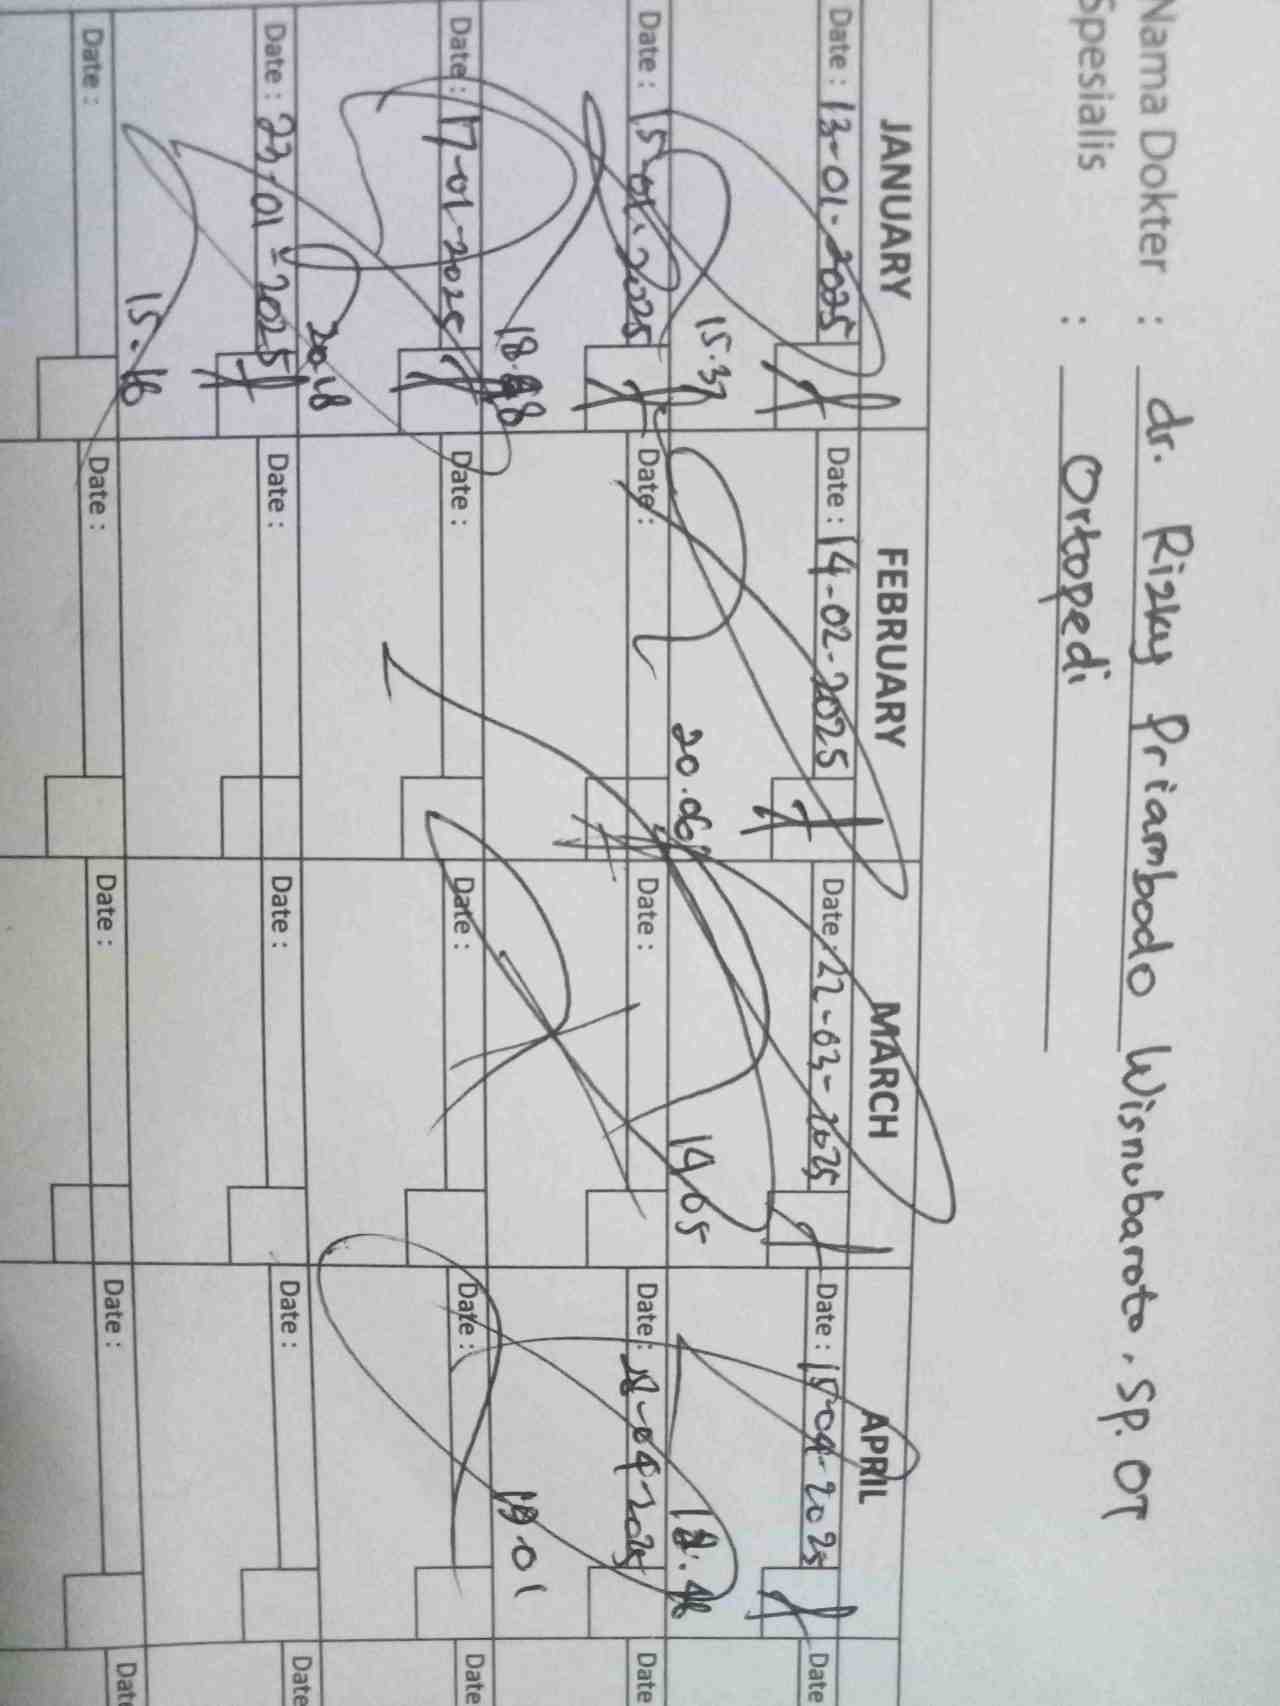 Nama Dokter : dr. Rizky Priambodo Wisnubaroto, Sp. OT
Spesialis : Ortopedi
JANUARY FEBRUARY MARCH APRIL
Date : 13-01-2025 Date : 14-02-2025 Date : 22-03-2025 Date : 15-04-2025 Date
15.37 20.06 14.05
Date : 15-01-2025 Date : Date : Date : 18-04-2025 Date
19.01
Date : 17-01-2025 Date : Date : Date : Date
20.18
Date : 23-01-2025 Date : Date : Date : Date
15.18
Date : Date : Date : Date : Date